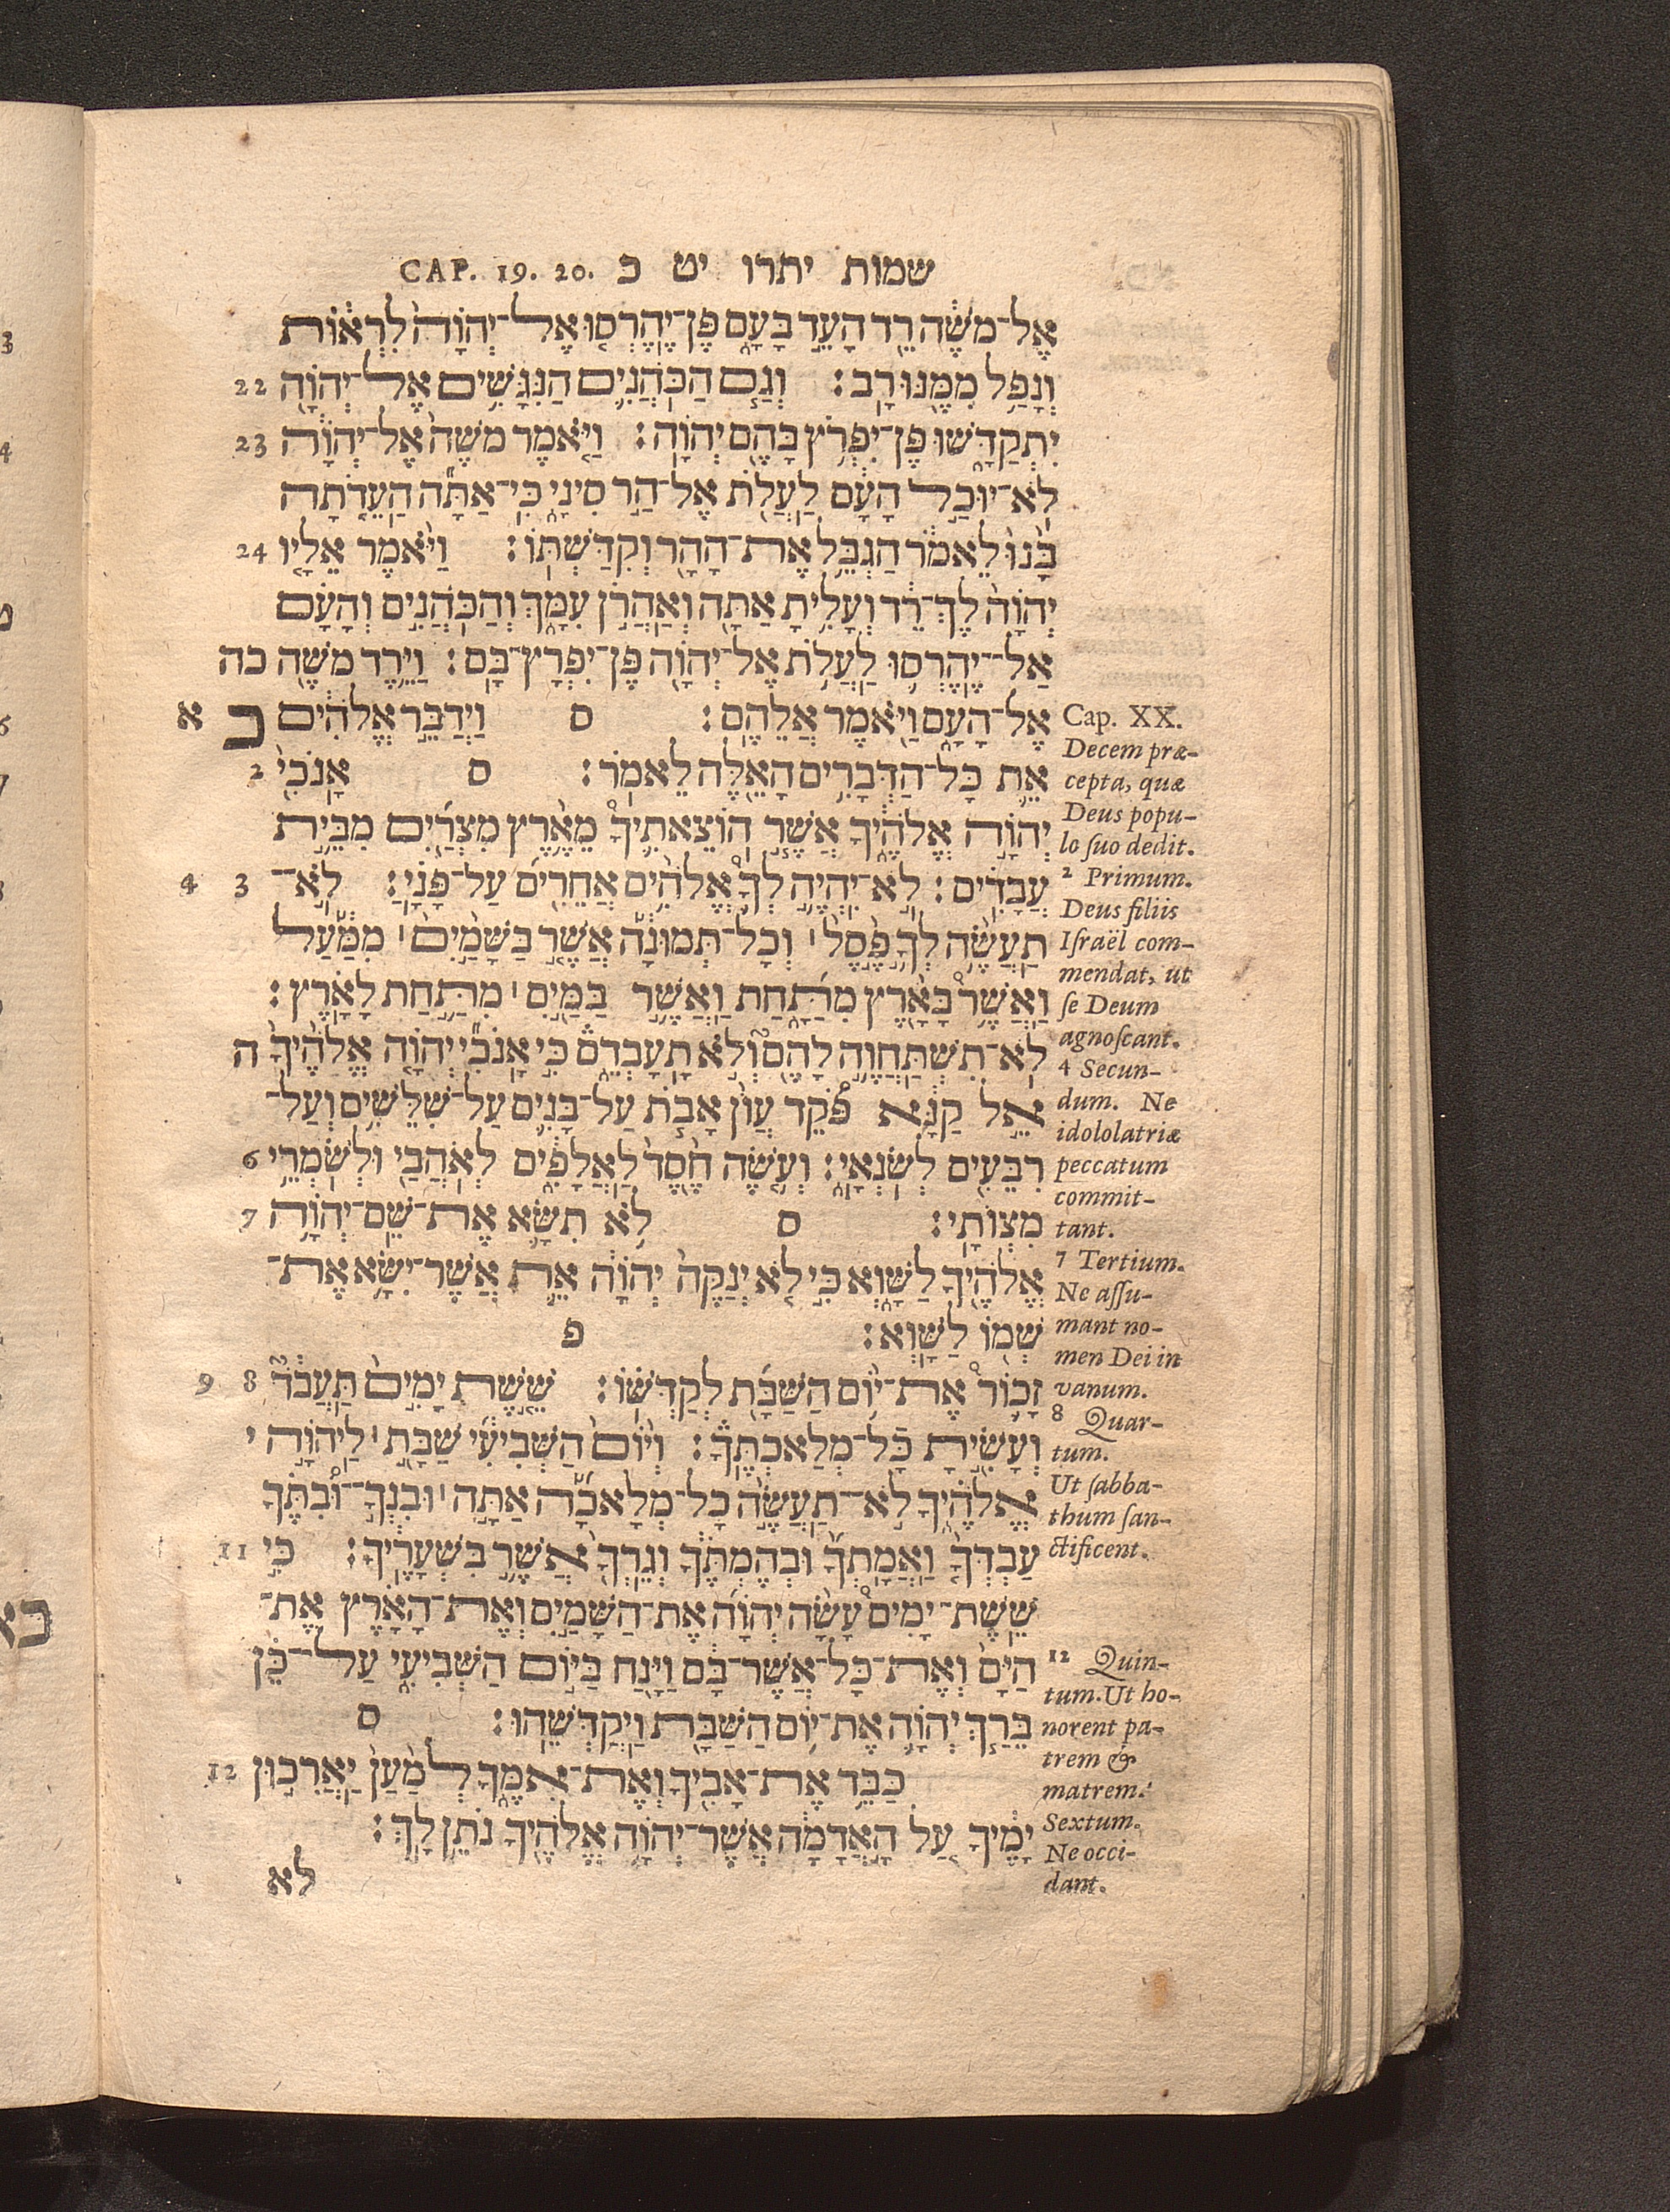 שמות יתרו יט כ CAP. 19. 20.
אֶל־מֹשֶׁה רֵד הָעֵד בָּעָם פֶּן־יֶהֶרְסוּ אֶל־יְהוָֹה לִרְאוֹת
וְנָפַל מִמֶּנּוּ רָב׃ וְגַם הַכֹּהֲנִים הַנִּגָּשִׁים אֶל־יְהוָֹה 22
יִתְקַדָּשׁוּ פֶּן־יִפְרֹץ בָּהֶם יְהוָֹה׃ וַיֹּאמֶר מֹשֶׁה אֶל־יְהוָֹה 23
לֹא־יוּכַל הָעָם לַעֲלֹת אֶל־הַר סִינָי כִּי־אַתָּה הַעֵדֹתָה
בָּנוּ לֵאמֹר הַגְבֵּל אֶת־הָהָר וְקִדַּשְׁתּוֹ׃ וַיֹּאמֶר אֵלָיו 24
יְהוָֹה לֶךְ־רֵד וְעָלִיתָ אַתָּה וְאַהֲרֹן עִמָּךְ וְהַכֹּהֲנִים וְהָעָם
אַל־יֶהֶרְסוּ לַעֲלֹת אֶל־יְהוָֹה פֶּן־יִפְרָץ־בָּם׃ וַיֵּרֶד מֹשֶׁה כה
אֶל־הָעָם וַיֹּאמֶר אֲלֵהֶם׃ ס וַיְדַבֵּר אֱלֹהִים כ א
אֵת כָּל־הַדְּבָרִים הָאֵלֶּה לֵאמֹר׃ ס אָנֹכִי 2
יְהוָֹה אֱלֹהֶיךָ אֲשֶׁר הוֹצֵאתִיךָ מֵאֶרֶץ מִצְרַיִם מִבֵּית
עֲבָדִים׃ לֹא־יִהְיֶה לְךָ אֱלֹהִים אֲחֵרִים עַל־פָּנָי׃ לֹא־ 3 4
תַעֲשֶׂה לְךָ פֶסֶל׀ וְכָל־תְּמוּנָה אֲשֶׁר בַּשָּׁמַיִם׀ מִמַּעַל
וַאֲשֶׁר בָּאָרֶץ מִתָּחַת וַאֲשֶׁר בַּמַּיִם׀ מִתַּחַת לָאָרֶץ׃
לֹא־תִשְׁתַּחֲוֶה לָהֶם וְלֹא תָעָבְדֵם כִּי אָנֹכִי יְהוָֹה אֱלֹהֶיךָ ה
אֵל קַנָּא פֹּקֵד עֲוֹן אָבֹת עַל־בָּנִים עַל־שִׁלֵּשִׁים וְעַל־
רִבֵּעִים לְשֹׂנְאָי׃ וְעֹשֶׂה חֶסֶד לַאֲלָפִים לְאֹהֲבַי וּלְשֹׁמְרֵי 6
מִצְוֹתָי׃ ס לֹא תִשָּׂא אֶת־שֵׁם־יְהוָֹה 7
אֱלֹהֶיךָ לַשָּׁוְא כִּי לֹא יְנַקֶּה יְהוָֹה אֵת אֲשֶׁר־יִשָּׂא אֶת־
שְׁמוֹ לַשָּׁוְא׃ פ
זָכוֹר אֶת־יוֹם הַשַּׁבָּת לְקַדְּשׁוֹ׃ שֵׁשֶׁת יָמִים תַּעֲבֹד 8 9
וְעָשִׂיתָ כָּל־מְלַאכְתֶּךָ׃ וְיוֹם הַשְּׁבִיעִי שַׁבָּת׀ לַיהוָֹה י
אֱלֹהֶיךָ לֹא־תַעֲשֶׂה כָל־מְלָאכָה אַתָּה׀ וּבִנְךָ־וּבִתֶּךָ
עַבְדְּךָ וַאֲמָתְךָ וּבְהֶמְתֶּךָ וְגֵרְךָ אֲשֶׁר בִּשְׁעָרֶיךָ׃ כִּי 11
שֵׁשֶׁת־יָמִים עָשָׂה יְהוָֹה אֶת־הַשָּׁמַיִם וְאֶת־הָאָרֶץ אֶת־
הַיָּם וְאֶת־כָּל־אֲשֶׁר־בָּם וַיָּנַח בַּיּוֹם הַשְּׁבִיעִי עַל־כֵּן
בֵּרַךְ יְהוָֹה אֶת־יוֹם הַשַּׁבָּת וַיְקַדְּשֵׁהוּ׃ ס
כַּבֵּד אֶת־אָבִיךָ וְאֶת־אִמֶּךָ לְמַעַן יַאֲרִכוּן 12
יָמֶיךָ עַל הָאֲדָמָה אֲשֶׁר־יְהוָֹה אֱלֹהֶיךָ נֹתֵן לָךְ׃
לא
Cap. XX.
Decem præ-
cepta, quæ
Deus popu-
lo ſuo dedit.
2 Primum.
Deus filiis
Iſraël com-
mendat, ut
ſe Deum
agnoſcant.
4 Secun-
dum. Ne
idololatriæ
peccatum
commit-
tant.
7 Tertium.
Ne aſſu-
mant no-
men Dei in
vanum.
8 Quar-
tum.
Ut ſabba-
thum ſan-
ctificent.
12 Quin-
tum. Ut ho-
norent pa-
trem &
matrem.
Sextum.
Ne occi-
dant.